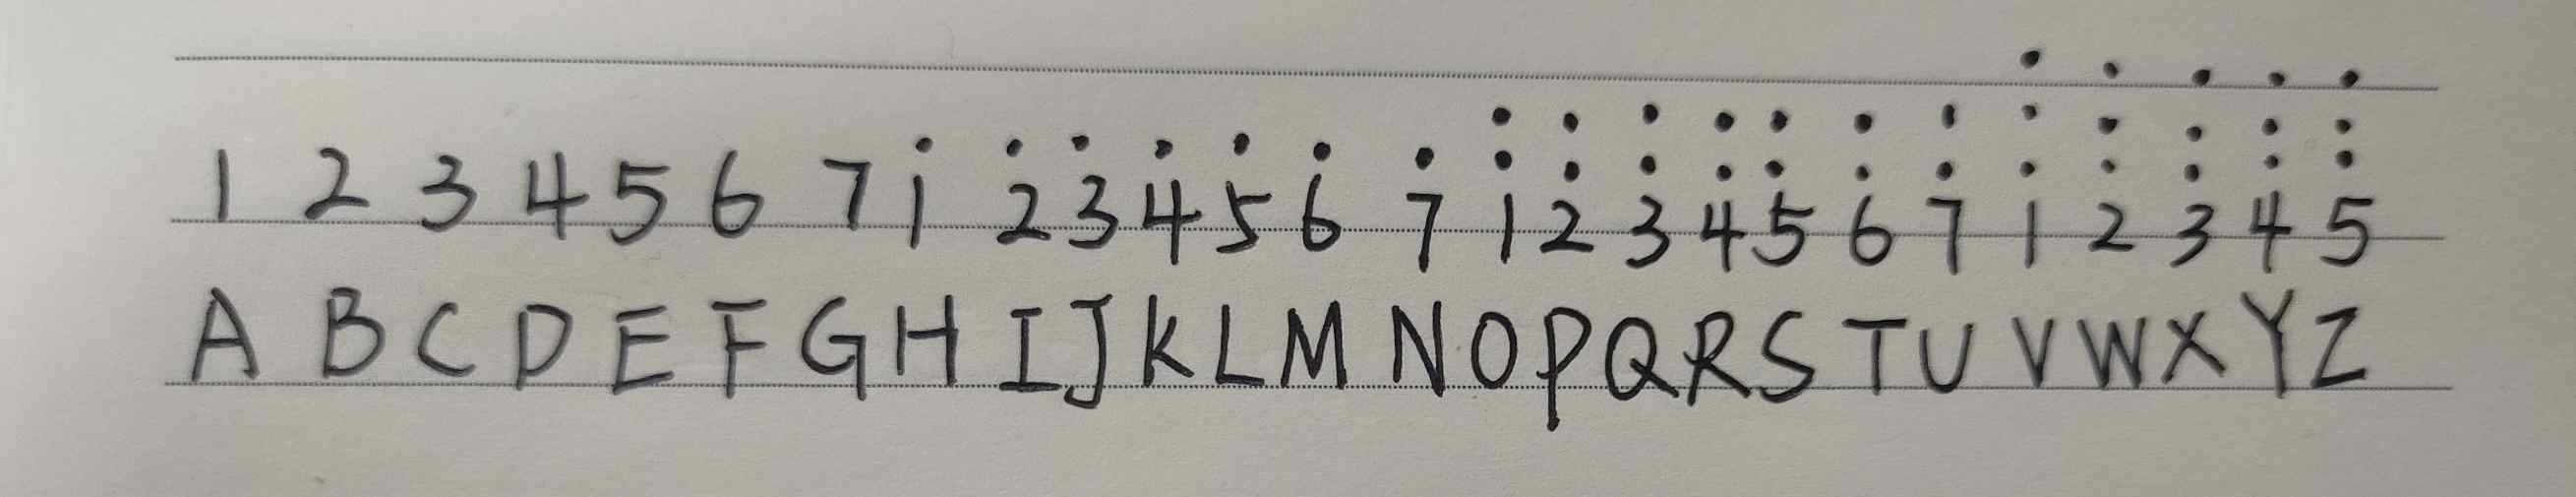 1 2 3 4 5 6 7 1̇ 2̇ 3̇ 4̇ 5̇ 6̇ 7̇ 1̇̇ 2̇̇ 3̇̇ 4̇̇ 5̇̇ 6̇̇ 7̇̇ 1̇̇̇ 2̇̇̇ 3̇̇̇ 4̇̇̇ 5̇̇̇
A B C D E F G H I J K L M N O P Q R S T U V W X Y Z